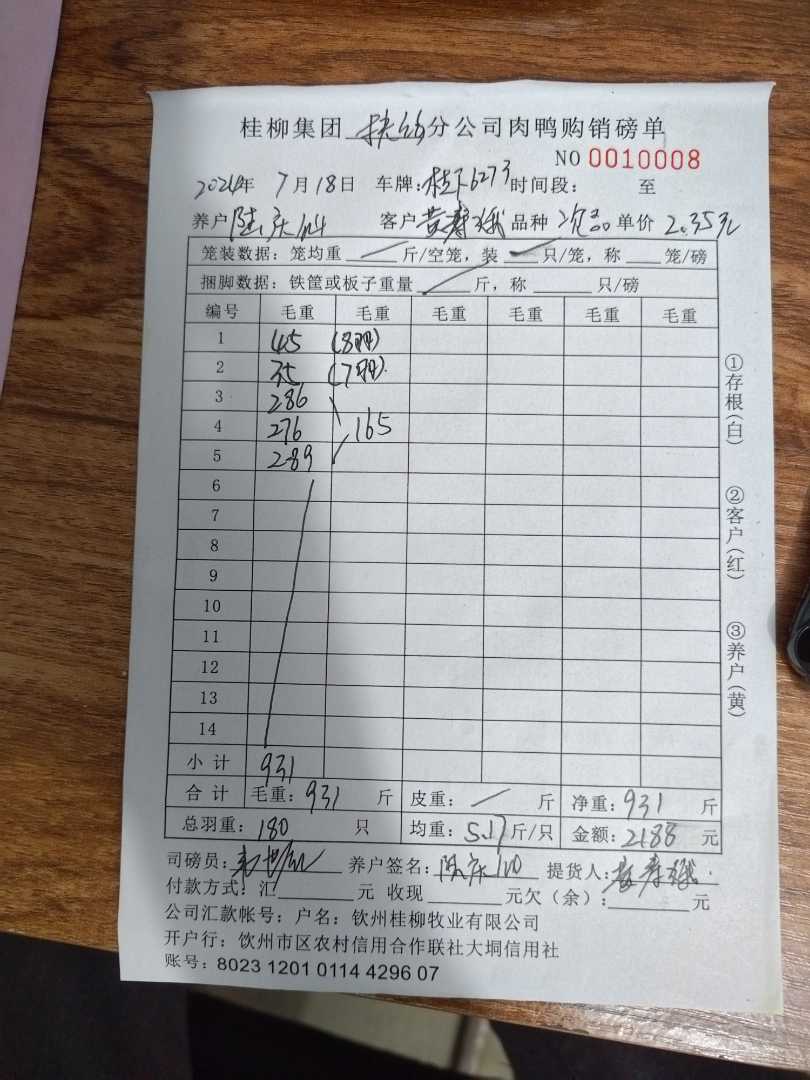 桂柳集团 分公司肉鸭购销磅单
NO 0010008
2024年 7月18日 车牌:桂 6273 时间段: 至
养户 陆庆 客户 黄寿 品种 次品 单价 2.35元
笼装数据:笼均重 斤/空笼,装 只/笼,称 笼/磅
捆脚数据:铁筐或板子重量 斤,称 只/磅
编号 毛重 毛重 毛重 毛重 毛重 毛重
1 45 (8羽)
2 35 (7羽)
3 286
4 276 165
5 289
6
7
8
9
10
11
12
13
14
小计 931
合计 毛重:931 斤 皮重: / 斤 净重:931 斤
总羽重:180 只 均重:5.17斤/只 金额:2188 元
司磅员: 养户签名:陆庆 提货人:
付款方式:汇 元 收现 元欠(余): 元
公司汇款帐号:户名:钦州桂柳牧业有限公司
开户行:钦州市区农村信用合作联社大垌信用社
账号:8023 1201 0114 4296 07
①存根(白)
②客户(红)
③养户(黄)